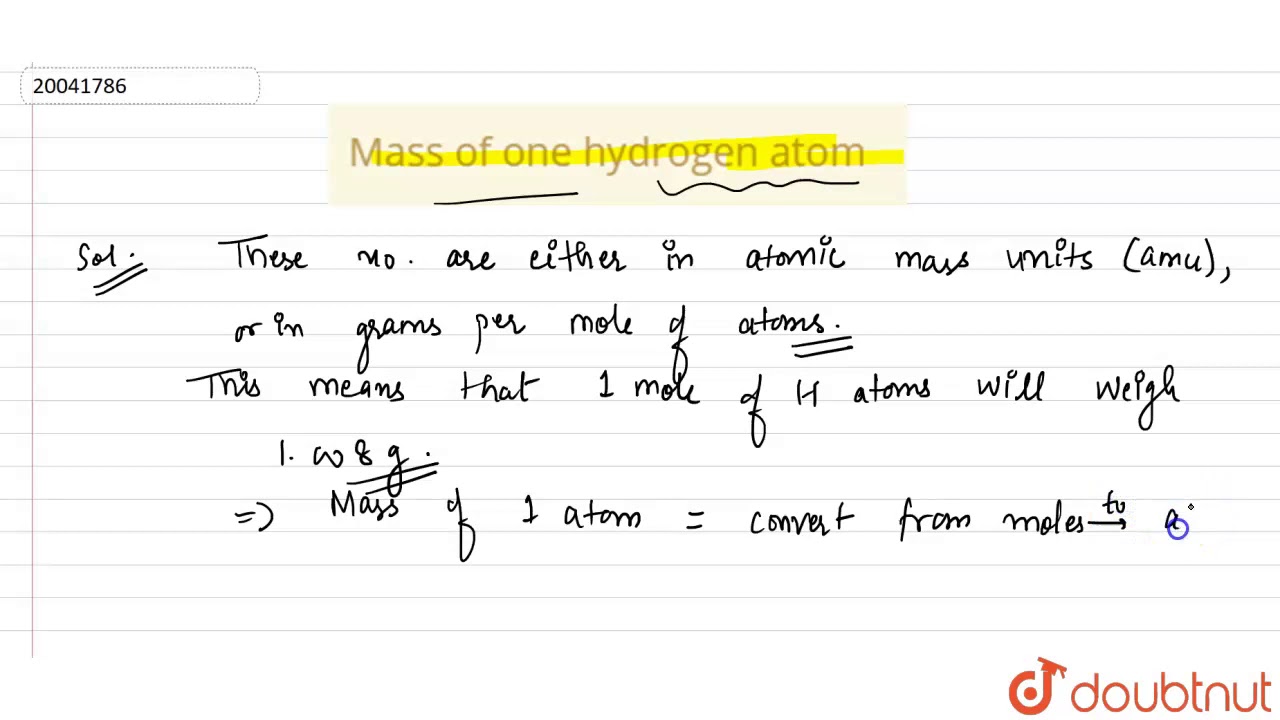 20041786
Mass of one hydrogen atom
Sol. These no. are either in atomic mass units (amu),
or in grams per mole of atoms.
This means that 1 mole of H atoms will weigh
1.008 g.
=> Mass of 1 atom = convert from moles to → a
doubtnut